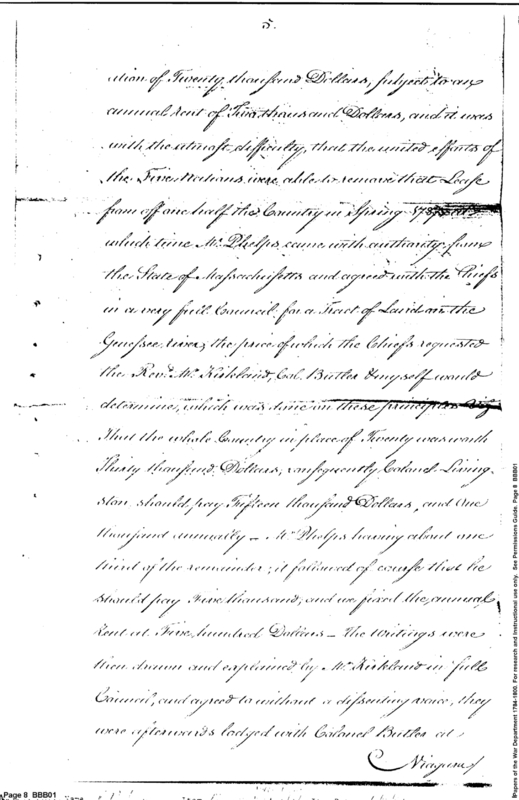 5.
ation of Twenty thousand Dollars, subject to an
annual Rent of Two thousand Dollars, and it was
with the utmost difficulty, that the united efforts of
the Five Nations were able to remove that Lease
from off one half the Country in Spring 1788, at
which time Mr. Phelps came with authority from
the State of Massachusetts and agreed with the Chiefs
in a very full Council for a Tract of Land on the
Genessee river, the price of which the Chiefs requested
the Revd. Mr. Kirkland, Col. Butler & myself would
determine, which was done on these principles Viz
That the whole Country in place of Twenty was worth
Thirty thousand Dollars, consequently Colonel Living-
ston should pay Fifteen thousand Dollars, and One
thousand annually — Mr. Phelps having about one
third of the remainder; it followed of course that he
should pay Five thousand, and we fixed the annual
Rent at Five hundred Dollars — The writings were
then drawn and explained by Mr. Kirkland in full
Council, and agreed to without a dissenting voice, they
were afterwards lodged with Colonel Butler at
Niagara
Page 8 BBB01
Papers of the War Department 1784-1800. For research and instructional use only. See Permissions Guide. Page 8 BBB01